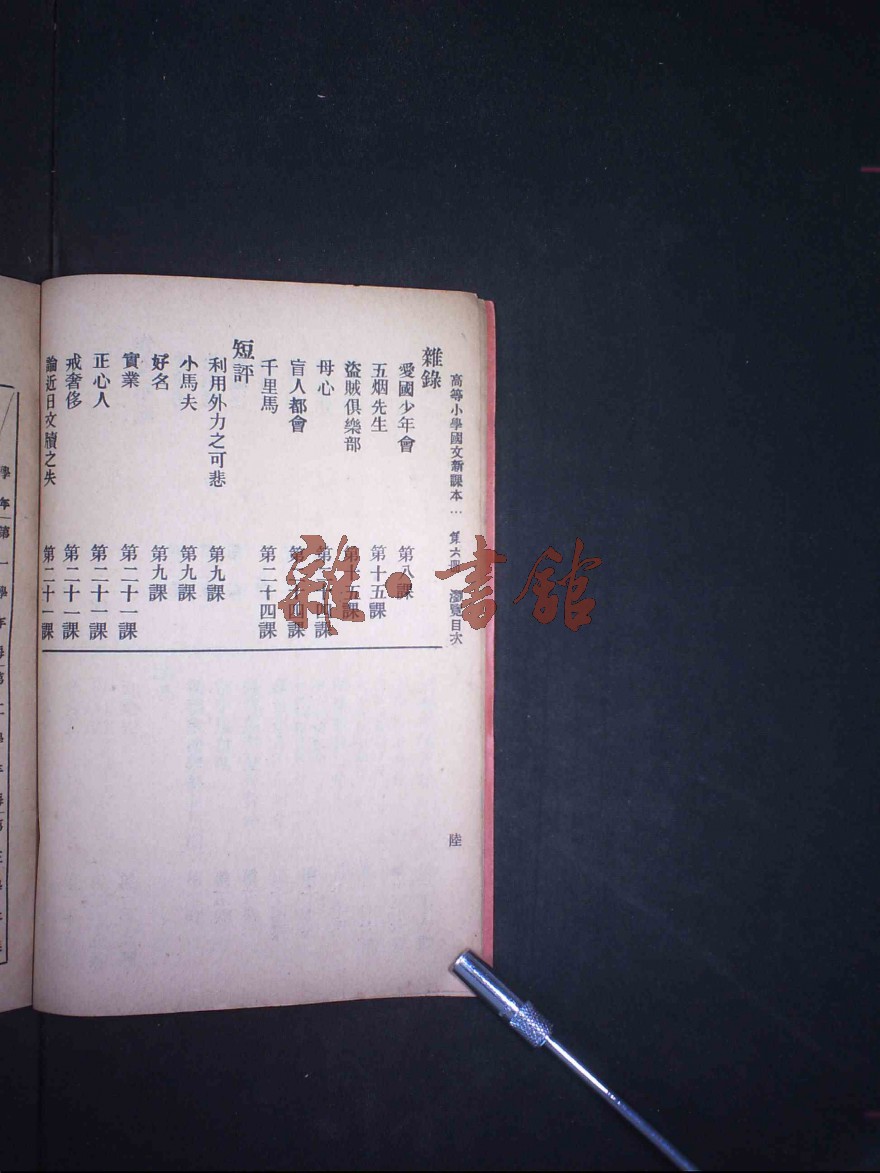 高等小學國文新課本… 第六冊 瀏覽目次 陸
雜錄
愛國少年會 第八課
五烟先生 第十五課
盜賊俱樂部 第十五課
母心 第二十四課
盲人都會 第二十四課
千里馬 第二十四課
短評
利用外力之可悲 第九課
小馬夫 第九課
好名 第九課
實業 第二十一課
正心人 第二十一課
戒奢侈 第二十一課
論近日文牘之失 第二十一課
學年 第一學年每 第二學年每 第三學年每
雜·書館